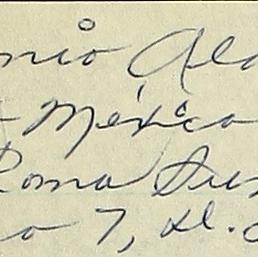 nio Ala
México
Roma Sur
o 7, D.